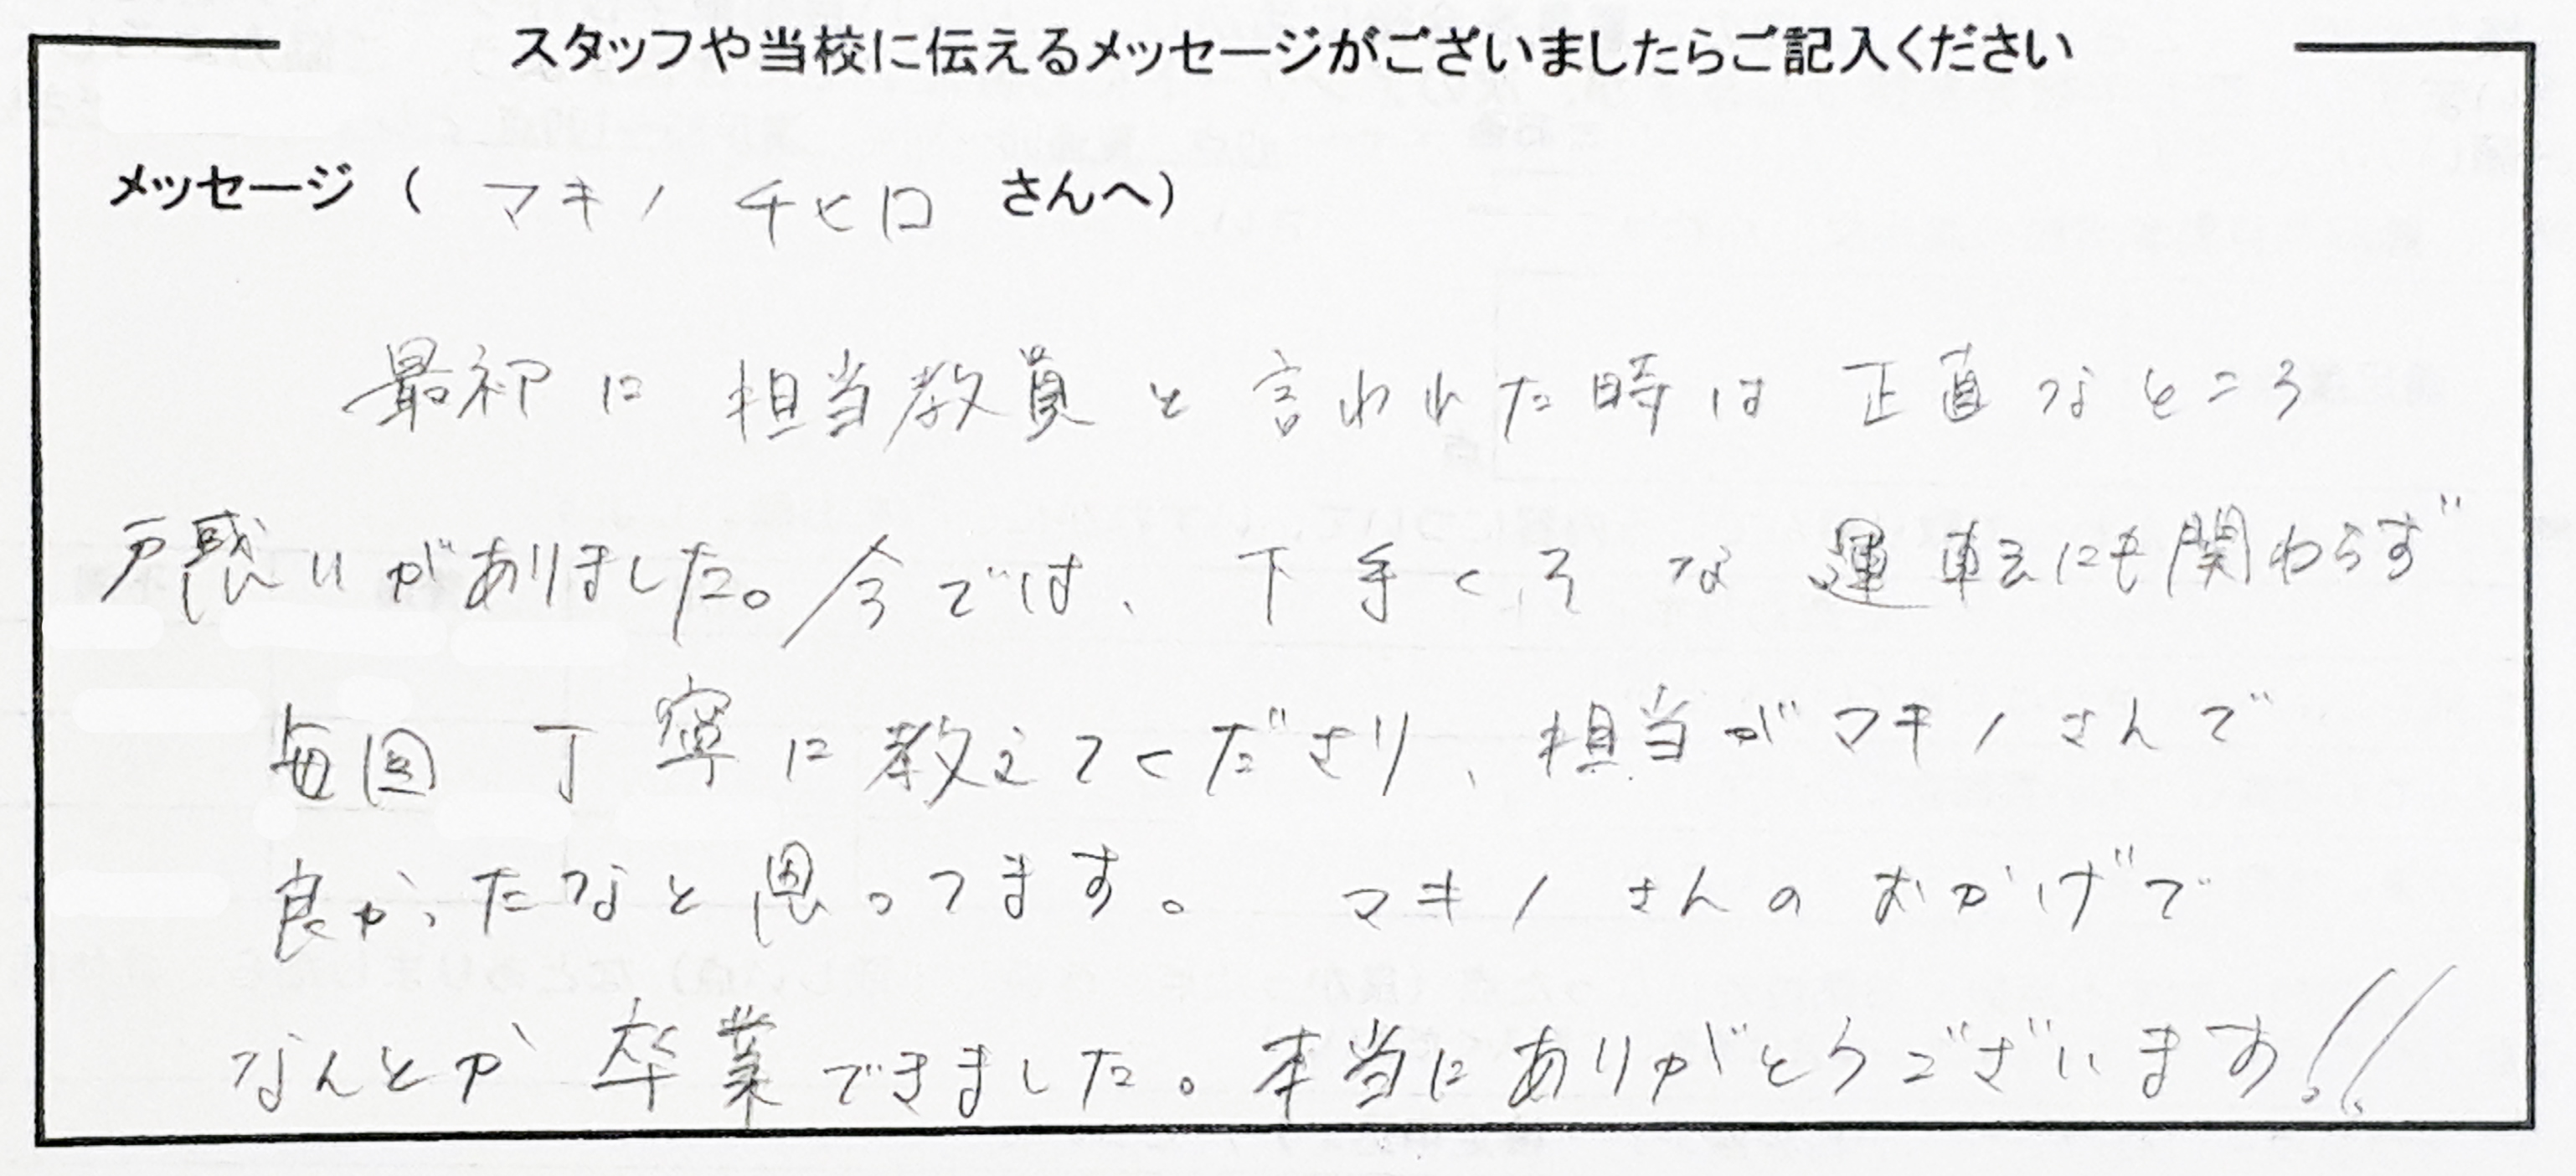 スタッフや当校に伝えるメッセージがございましたらご記入ください
メッセージ ( マキノ チヒロ さんへ)
最初に 担当教員と言われた時は 正直なところ
戸惑いがありました。今では、下手くそな運転にも関わらず
毎回 丁寧に教えてくださり、担当がマキノさんで
良かったなと思ってます。 マキノさんのおかげで
なんとか卒業できました。本当にありがとうございます!!